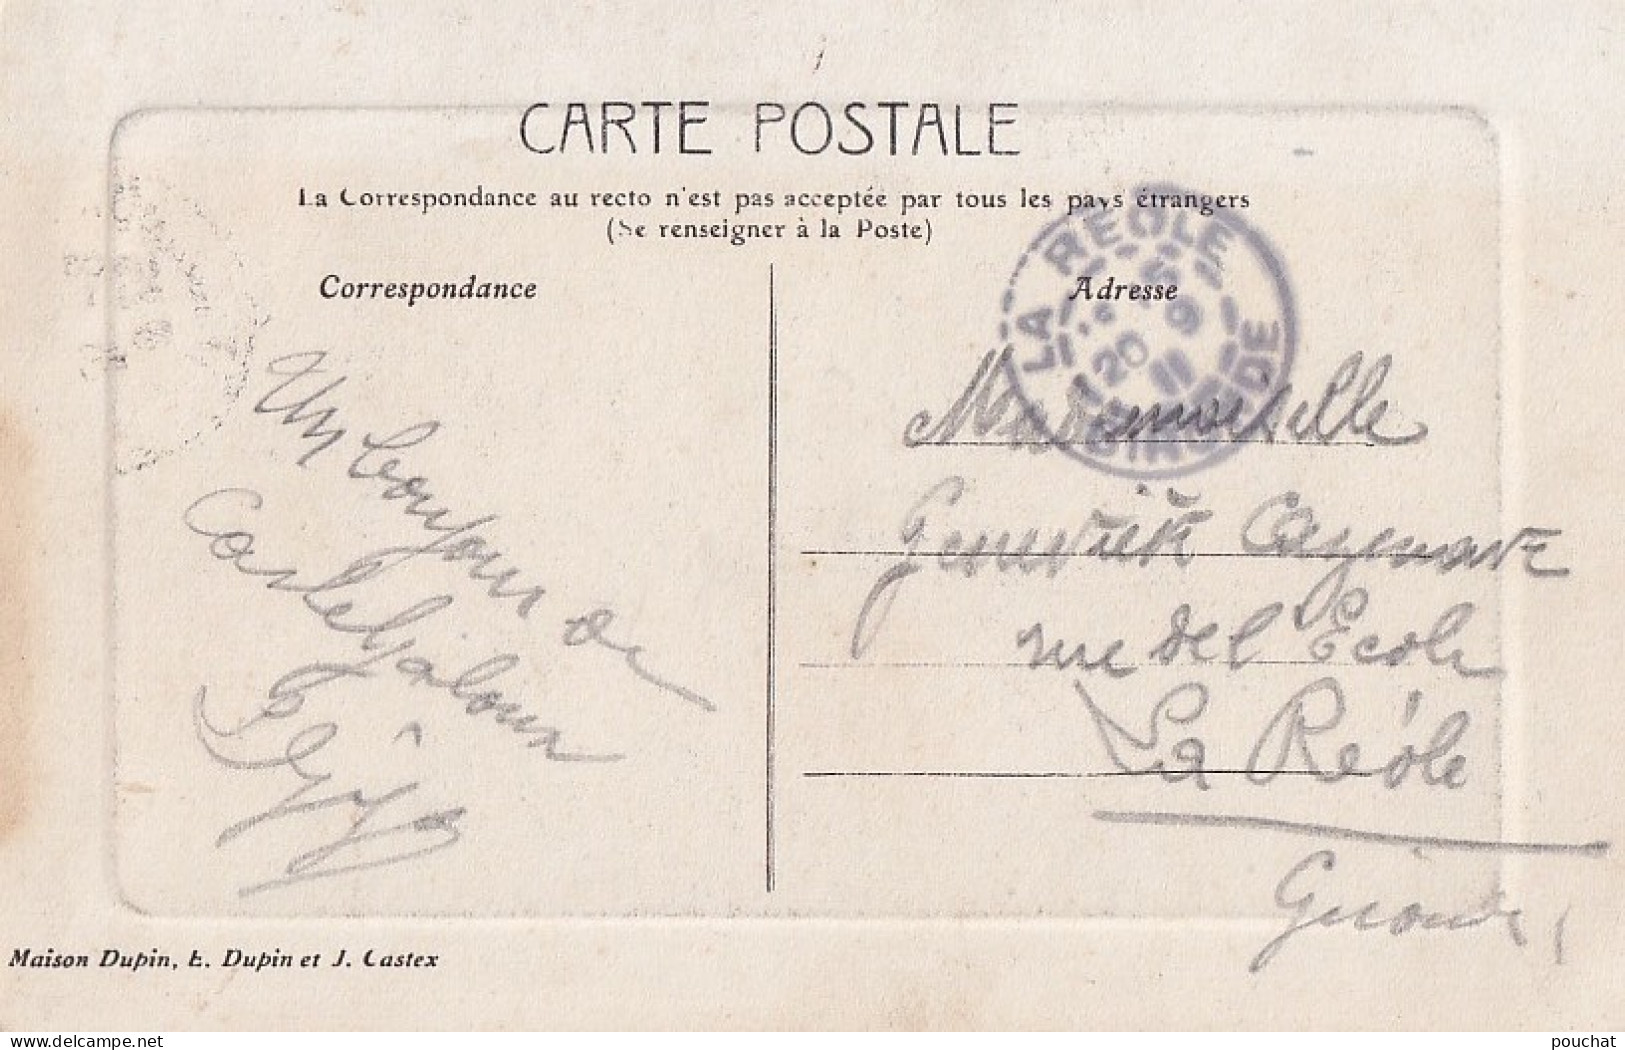 CARTE POSTALE
La Correspondance au recto n'est pas acceptée par tous les pays étrangers
(Se renseigner à la Poste)
Correspondance
Adresse
LA REOLE
20 9
11
GIRONDE
Un bonjour de
Casteljaloux
Mademoiselle
Geneviève Cazenave
rue de l'Ecole
La Réole
Gironde
Maison Dupin, E. Dupin et J. Castex
pouchat
www.delcampe.net